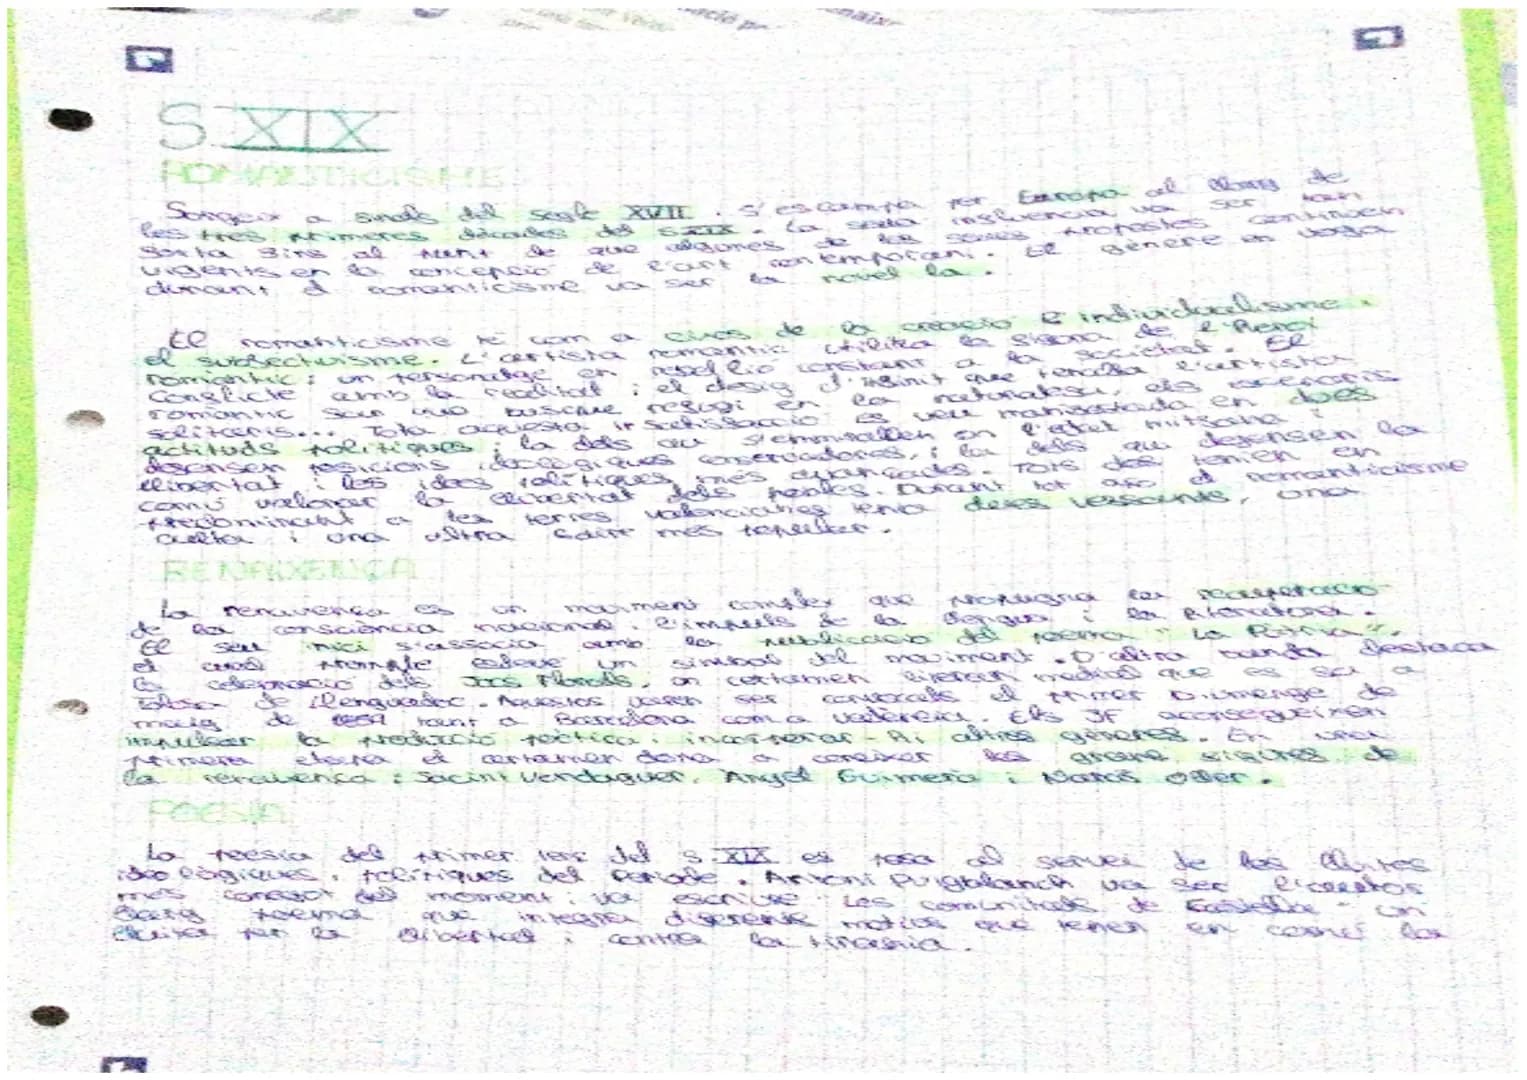 S. XIX
ROMANTICISME
Sorgeix a finals del segle XVIII. S'escampa per Europa al llarg de
les tres primeres dècades del S.XIX. La seva influència va ser tan
forta fins al punt de que algunes de les seves propostes continuen
vigents en la concepció de l'art contemporani. El gènere en voga
durant el romanticisme va ser la novel·la.
El romanticisme té com a eixos de la creació l'individualisme i
el subjectivisme. L'artista romàntic utilitza la figura de l'heroi
romàntic: un personatge en rebel·lió constant a la societat. El
conflicte amb la realitat i el desig d'infinit que l'artista
romàntic fan que busque refugi en la naturalesa, els escenaris
solitaris... Tota aquesta insatisfacció es veu manifestada en dues
actituds polítiques: la dels que s'emmirallen en l'edat mitjana i
defensen posicions ideològiques conservadores, i la dels que defensen la
llibertat i les idees polítiques més avançades. Tots dos tenien en
comú valorar la llibertat dels pobles. Durant tot el romanticisme
predominant a les terres valencianes tenia dues vessants, una
culta i una altra més popular.
RENAIXENÇA
La renaixença és un moviment complex que propugna la recuperació
de la consciència nacional, l'impuls de la llengua i la literatura.
El seu inici s'associa amb la publicació del poema "La Pàtria",
el qual un símbol del moviment. D'altra banda destaca
la celebració dels Jocs Florals, un certamen literari medieval que es feia a
de llenguadoc. Aquestos varen ser convocats el primer Diumenge de
maig de tant a Barcelona com a València. Els JF aconsegueixen
impulsar la producció poètica i incorporar-hi altres gèneres. En una
primera etapa el certamen dona a conèixer les grans figures de
la renaixença: Jacint Verdaguer, Àngel Guimerà i Narcís Oller.
POESIA
La poesia del primer terç del s.XIX es posa al servei de les lluites
ideològiques i polítiques del període. Antoni Puigblanch va ser l'escriptor
més conegut del moment i va escriure "Les comunitats de Castella" un
llarg poema que integra diferents motius que tenen en comú la
lluita per la llibertat i contra la tirania.